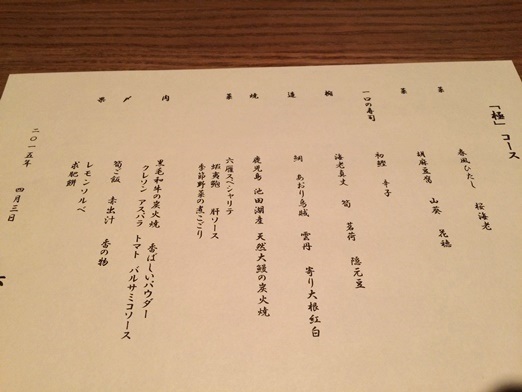 「極」コース
菜 春風ひたし 桜海老
菜 胡麻豆腐 山葵 花穂
一口の寿司 初鰹 辛子
椀 海老真丈 筍 茗荷 隠元豆
造 鯛 あおり烏賊 雲丹 寄り大根紅白
焼 鹿児島 池田湖産 天然大鰻の炭火焼
菜 六雁スペシャリテ
蝦夷鮑 肝ソース
季節野菜の煮こごり
肉 黒毛和牛の炭火焼 香ばしいパウダー
クレソン アスパラ トマト バルサミコソース
〆 筍ご飯 赤出汁 香の物
果 レモンソルベ
求肥餅
二〇一五年 四月三日